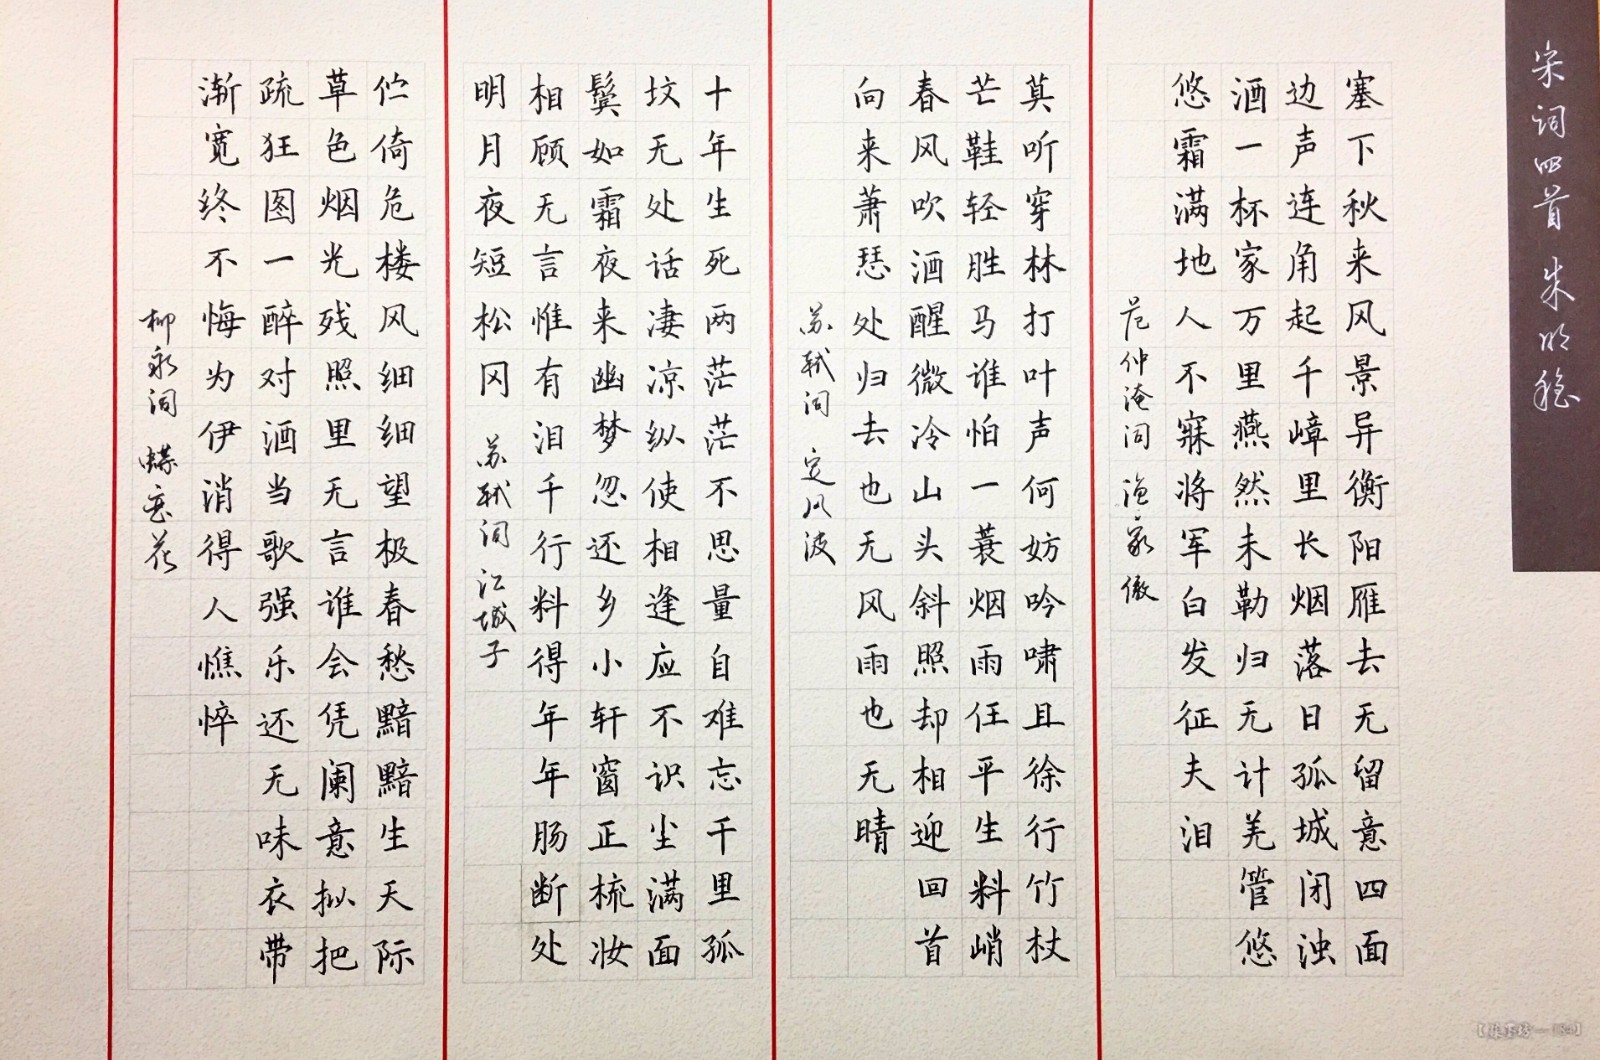 宋词四首 朱明稳
塞下秋来风景异衡阳雁去无留意四面
边声连角起千嶂里长烟落日孤城闭浊
酒一杯家万里燕然未勒归无计羌管悠
悠霜满地人不寐将军白发征夫泪
范仲淹词 渔家傲
莫听穿林打叶声何妨吟啸且徐行竹杖
芒鞋轻胜马谁怕一蓑烟雨任平生料峭
春风吹酒醒微冷山头斜照却相迎回首
向来萧瑟处归去也无风雨也无晴
苏轼词 定风波
十年生死两茫茫不思量自难忘千里孤
坟无处话凄凉纵使相逢应不识尘满面
鬓如霜夜来幽梦忽还乡小轩窗正梳妆
相顾无言惟有泪千行料得年年肠断处
明月夜短松冈 苏轼词 江城子
伫倚危楼风细细望极春愁黯黯生天际
草色烟光残照里无言谁会凭阑意拟把
疏狂图一醉对酒当歌强乐还无味衣带
渐宽终不悔为伊消得人憔悴
柳永词 蝶恋花